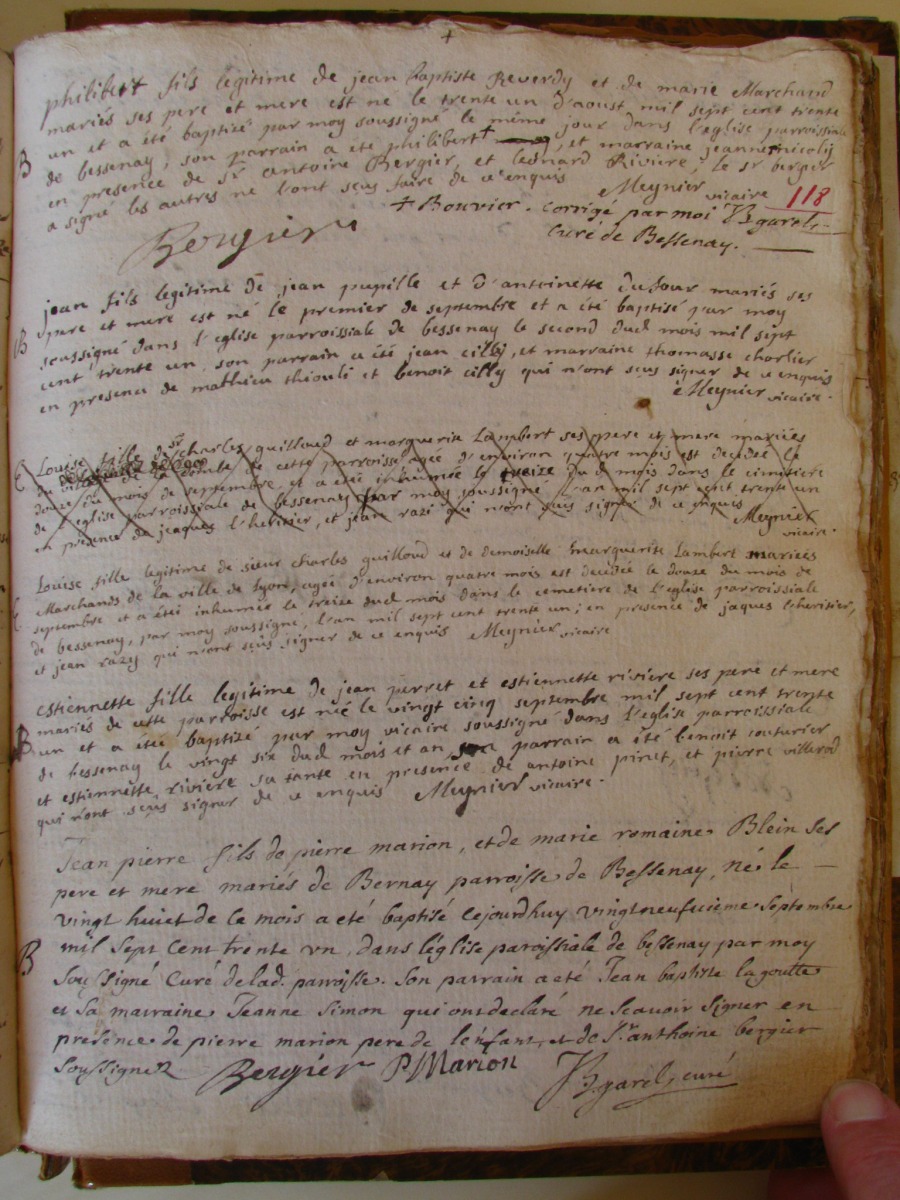 +
philibert fils legitime de jean baptiste Reverdy et de marie Marchand
mariés ses pere et mere est né le trente un d'aoust mil sept cent trente
un et a été baptizé par moy soussigné le même jour dans l'eglise parroissiale
B
de bessenay, son parrain a été philibert + , et marraine jeanne nicoly
en presence de Sr antoine Bergier, et leonard Riviere, le sr bergier
a signé les autres ne l'ont sçus faire de ce enquis
Meynier vicaire 118
+ Bouvier. corrigé par moi JB garel
Bergier
Curé de Bessenay.
jean fils legitime de jean pupille et d'antoinette dufour mariés ses
pere et mere est né le premier de septembre et a été baptisé par moy
B
soussigné dans l'eglise parroissiale de bessenay le second dud mois mil sept
cent trente un, son parrain a été jean cilly, et marraine thomasse charlier
en presence de mathieu thiouli et benoit cilly qui n'ont sçus signer de ce enquis
Meynier vicaire.
E
Louise fille de sr charles guilloud et marguerite Lambert ses pere et mere mariées
de cette parroisse agée d'environ quatre mois est decidée le
douze du mois de septembre, et a été inhumée le treize dud mois dans le cimetiere
de l'eglise parroissiale de bessenay par moy soussigné l'an mil sept cent trente un
en presence de jacques l'heritier, et jean razi qui n'ont sçus signer de ce enquis
Meynier
vicaire.
Louise fille legitime de sieur charles guilloud et de demoiselle marguerite Lambert mariées
E
Marchands de la ville de Lyon, agée d'environ quatre mois est decidée le douze du mois de
septembre et a été inhumée le treize dud mois dans le cemetiere de l'eglise parroissiale
de bessenay, par moy soussigné, l'an mil sept cent trente un; en presence de jaques l'heritier,
et jean razy qui n'ont sçus signer de ce enquis Meynier vicaire
estiennette fille legitime de jean perret et estiennette riviere ses pere et mere
mariés de cette parroisse est née le vingt cinq septembre mil sept cent trente
B
un et a étée baptizé par moy vicaire soussigné dans l'eglise parroissiale
de bessenay le vingt six dud mois et an son parrain a été benoit couturier
et estiennette riviere sa tante en presence de antoine pinet, et pierre villerod
qui n'ont sçus signer de ce enquis Meynier vicaire.
Jean pierre fils de pierre marion, et de marie romaine Blein ses
pere et mere mariés de Bernay parroisse de Bessenay, né le
vingt huict de ce mois a eté baptisé cejourdhuy vingtneufuieme Septembre
B
mil Sept Cent trente un, dans l'église paroissiale de bessenay par moy
Soussigné Curé delad. parroisse. Son parrain a eté Jean baptiste lagoutte
et sa marraine Jeanne Simon qui ont declaré ne Scavoir Signer en
presence de pierre marion pere de l'enfant, et de Sr. anthoine bergier
Soussignez Bergier P Marion JB garel, curé